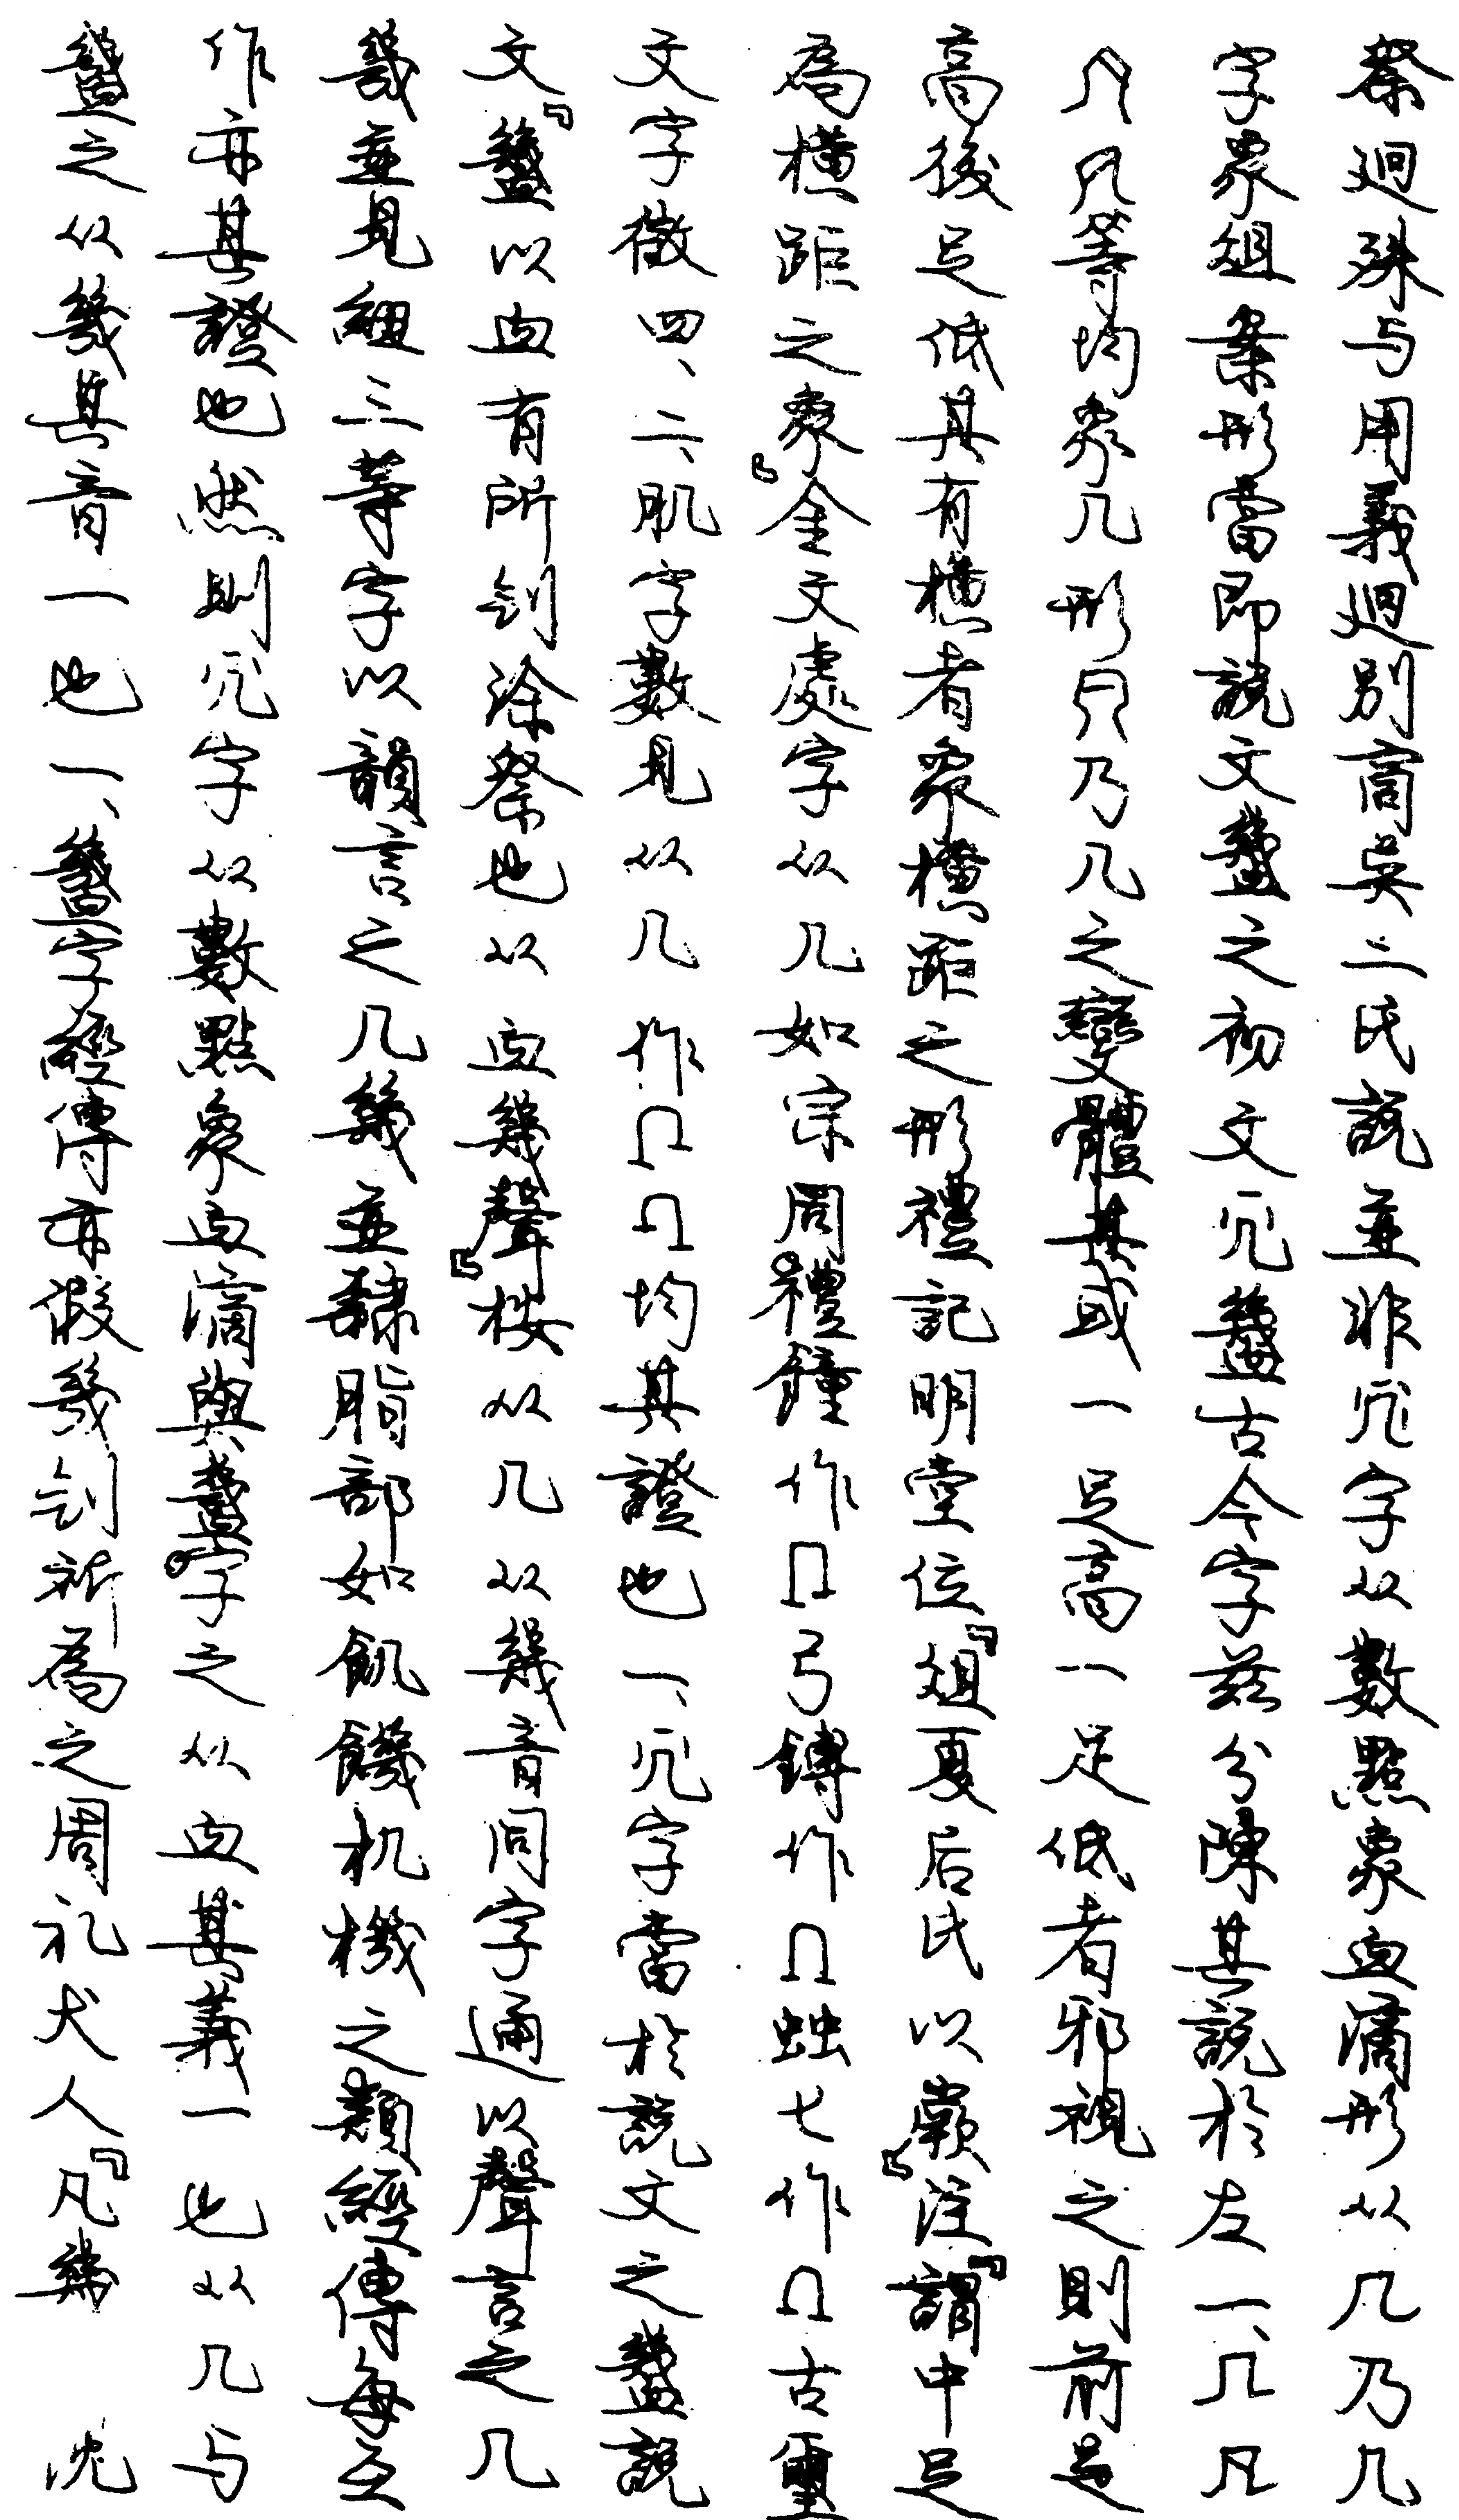 祭迥殊与用義迥別商吳二氏說並非𠘱字从數點象血滴形从几乃几
字象俎案形當即說文盤之初文𠘱盤古今字茲分陳其說於左一、几凡
等均象几形只乃几之變體其或一足高一足低者邪視之則前足
高後足低其有橫者象橫距之形禮記明堂位『俎夏后氏以嶡』注『謂中足
為橫距之象』金文處字从几如宗周禮鐘作Ω弓鎛作Ω蚰匕作Ω古璽
文字徵四、二肌字數見从几作ΩΩ均其證也一、𠘱字當於說文之𥁄說
文『𥁄以血有所刉涂祭也从血幾聲』按从几从幾音同字通以聲言之几
幾並見紐三等字以韻言之几幾並隸脂部如飢饑机機之類經傳每互
作亦其證也然則𠘱字从數點象血滴與𥁄字之从血其義一也从几与
𥁄之从幾其音一也一、𥁄字經傳亦假幾刉祈為之周礼犬人『凡幾沈